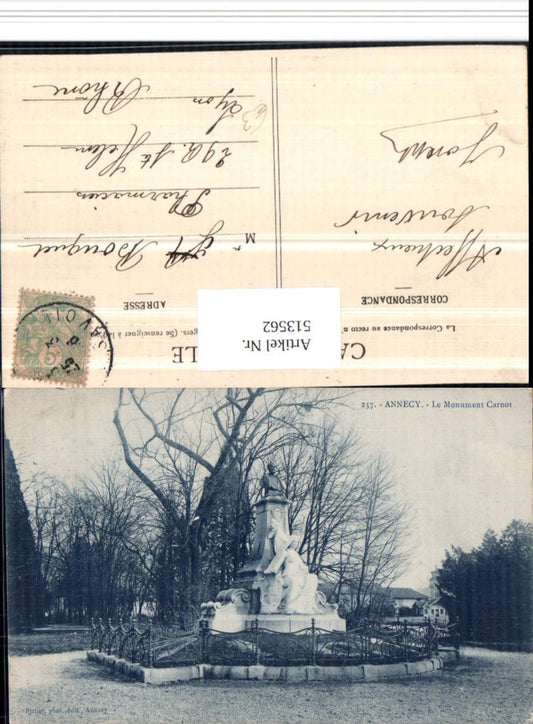 La Correspondance au recto n
gers. (Se renseigner à la
CORRESPONDANCE
ADRESSE
Affectueux
souvenir
Joseph
Mr
Bouquet
Pharmacien
29 R. Ste Helene
Lyon
Rhône
63
SAVOIE
Artikel Nr.
513562
257. - ANNECY. - Le Monument Carnot
Pittier, phot.-édit., Annecy